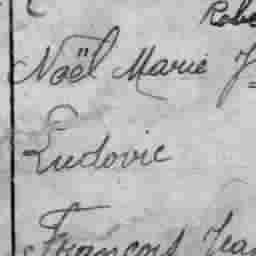 Robe
Noël Marie J
Ludovic
François Jea